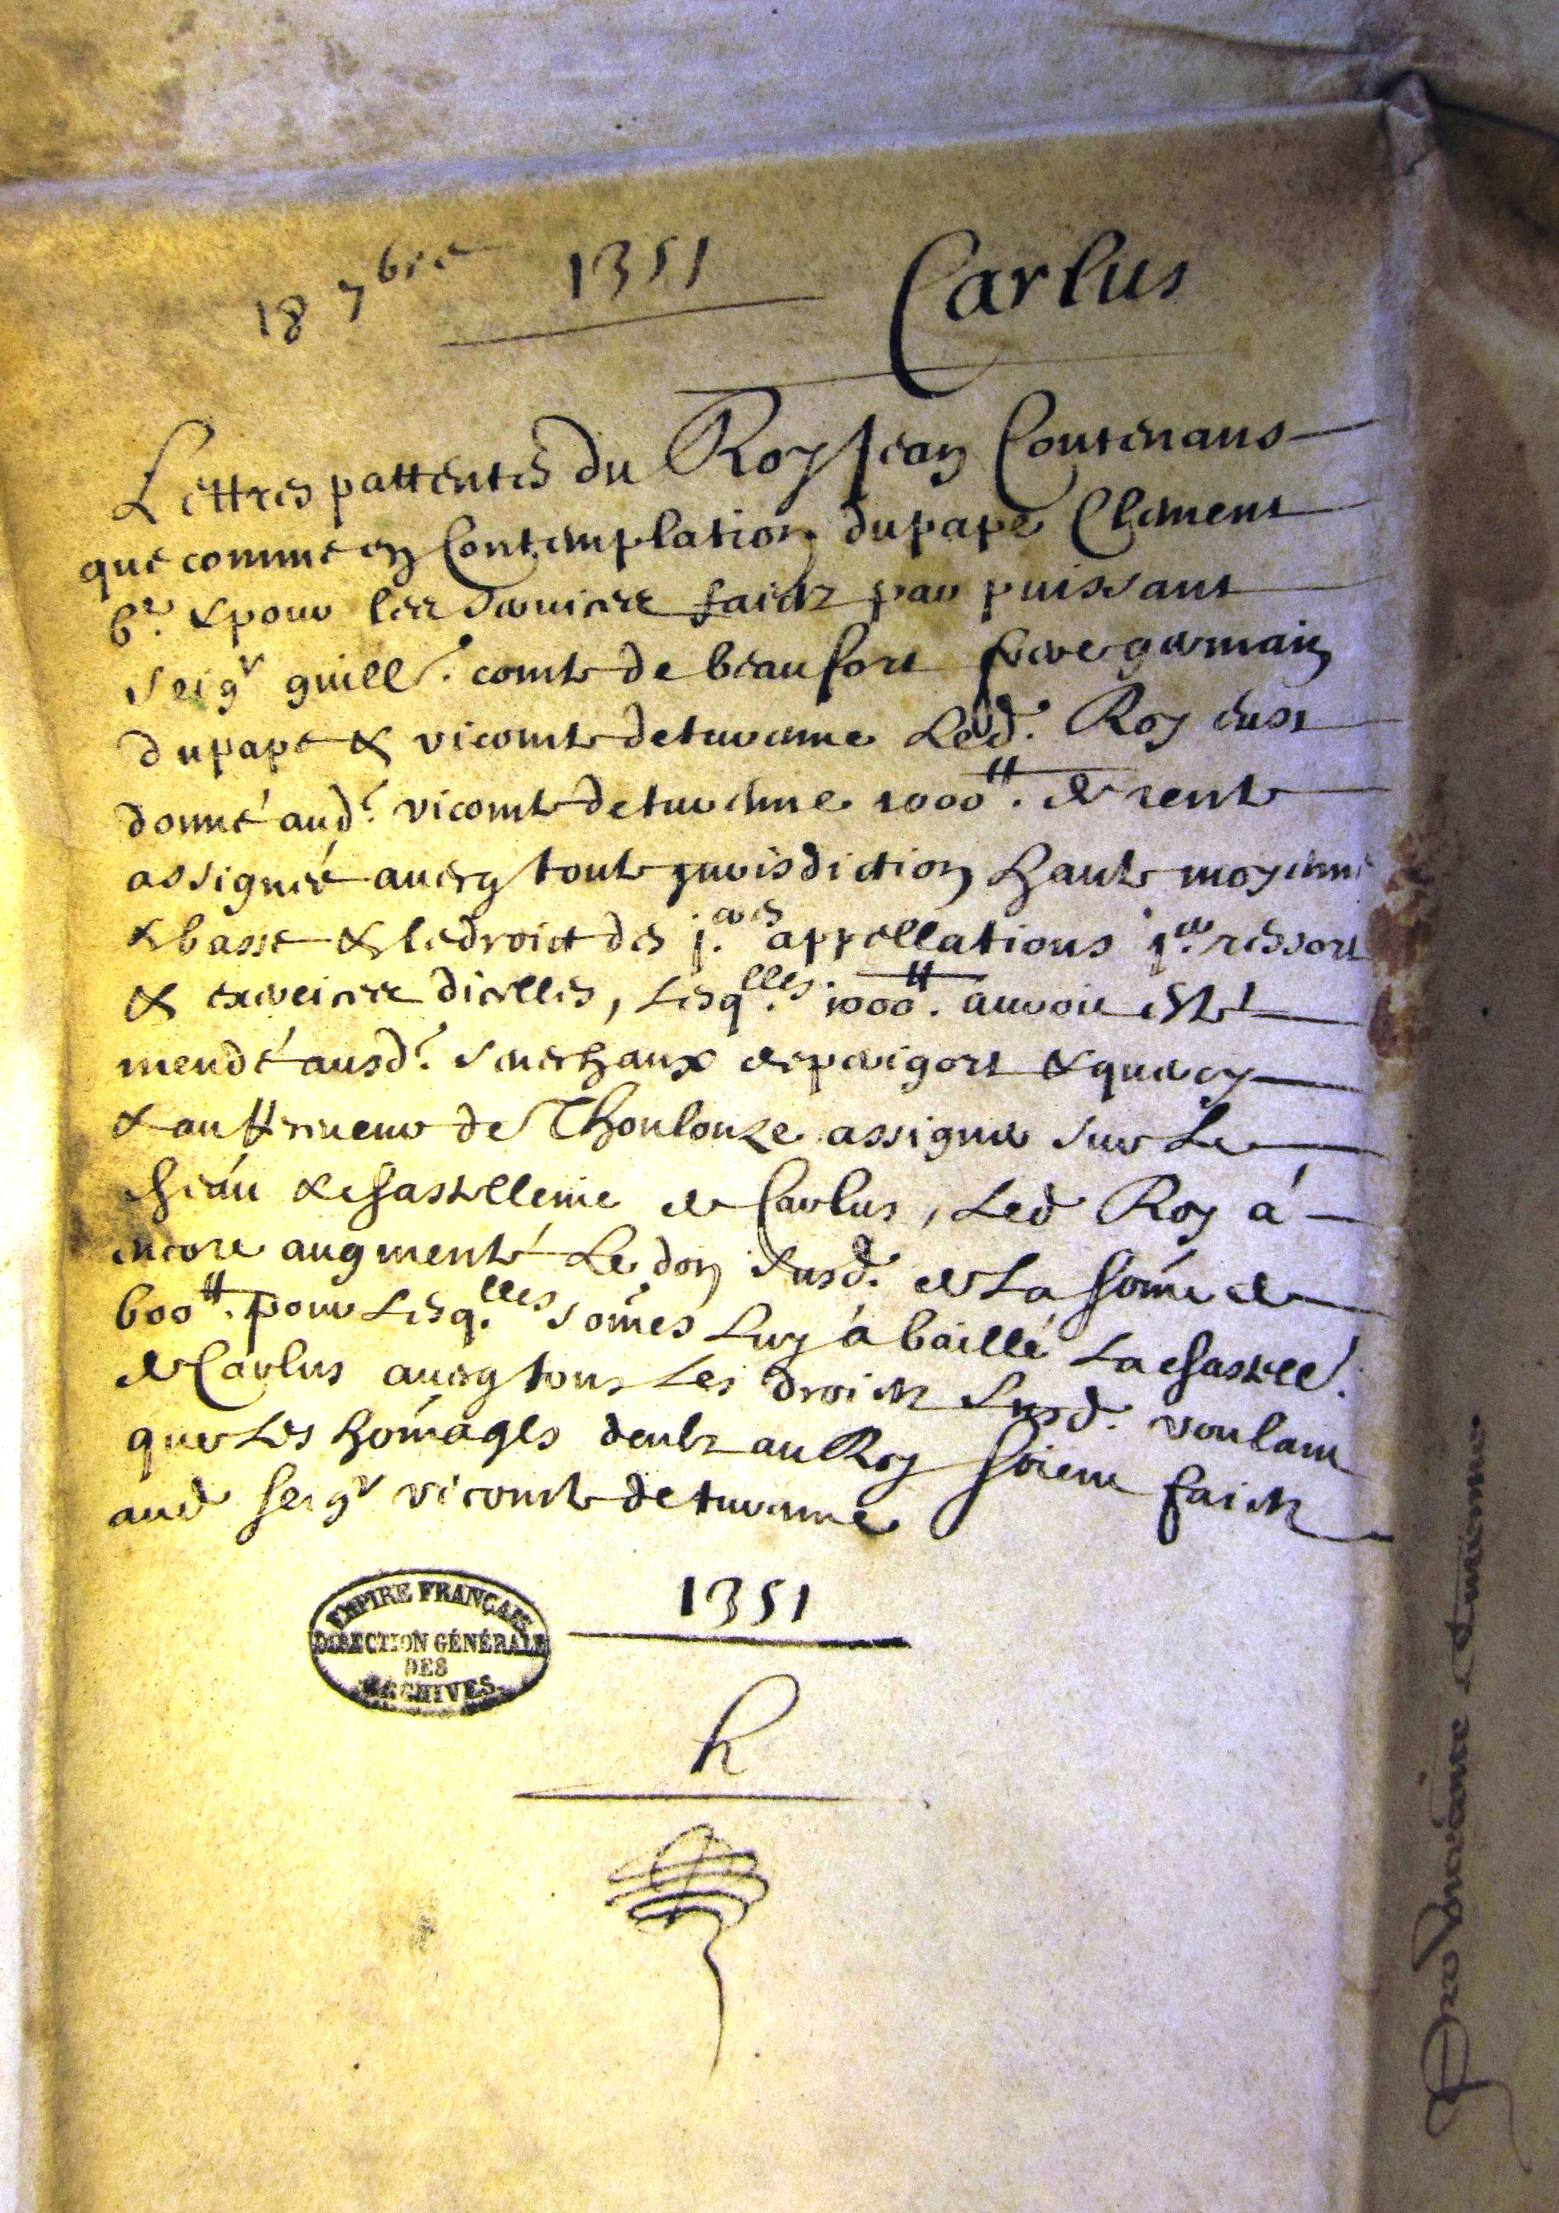 18 7bre 1351 Carlus
Lettres pattentes du Roy Jean Contenans
que comme en Contemplation du pape Clement
6e. & pour les services faictz par puissant
Seigr guille. comte de beaufort frere germain
du pape & vicomte de turenne Led. Roy eust
donné aud. vicomte de turenne 1000tt. de rente
assignée auecq toute jurisdiction haute moyenne
& basse & le droict des j.eres appellations j.er ressort
& exercice dicelles, Lesq.lles 1000tt. auroit esté
mendé ausd. Seneschaux de perigort & quercy
& au ttrireur de Thoulouze assigner sur Le
cheáu & chastellenie de Carlus, Led Roy á
encore augmenté Le don susd. de La some de
600tt. pour Lesq.lles somes Luy á baillé La chastelle.
de Carlus auecq tous Les droictz susd. voulant
que Les homages deubz au Roy soient faictz
aud seigr vicomte de turenne
1351
EMPIRE FRANÇAIS
DIRECTION GÉNÉRALE
DES
ARCHIVES
h